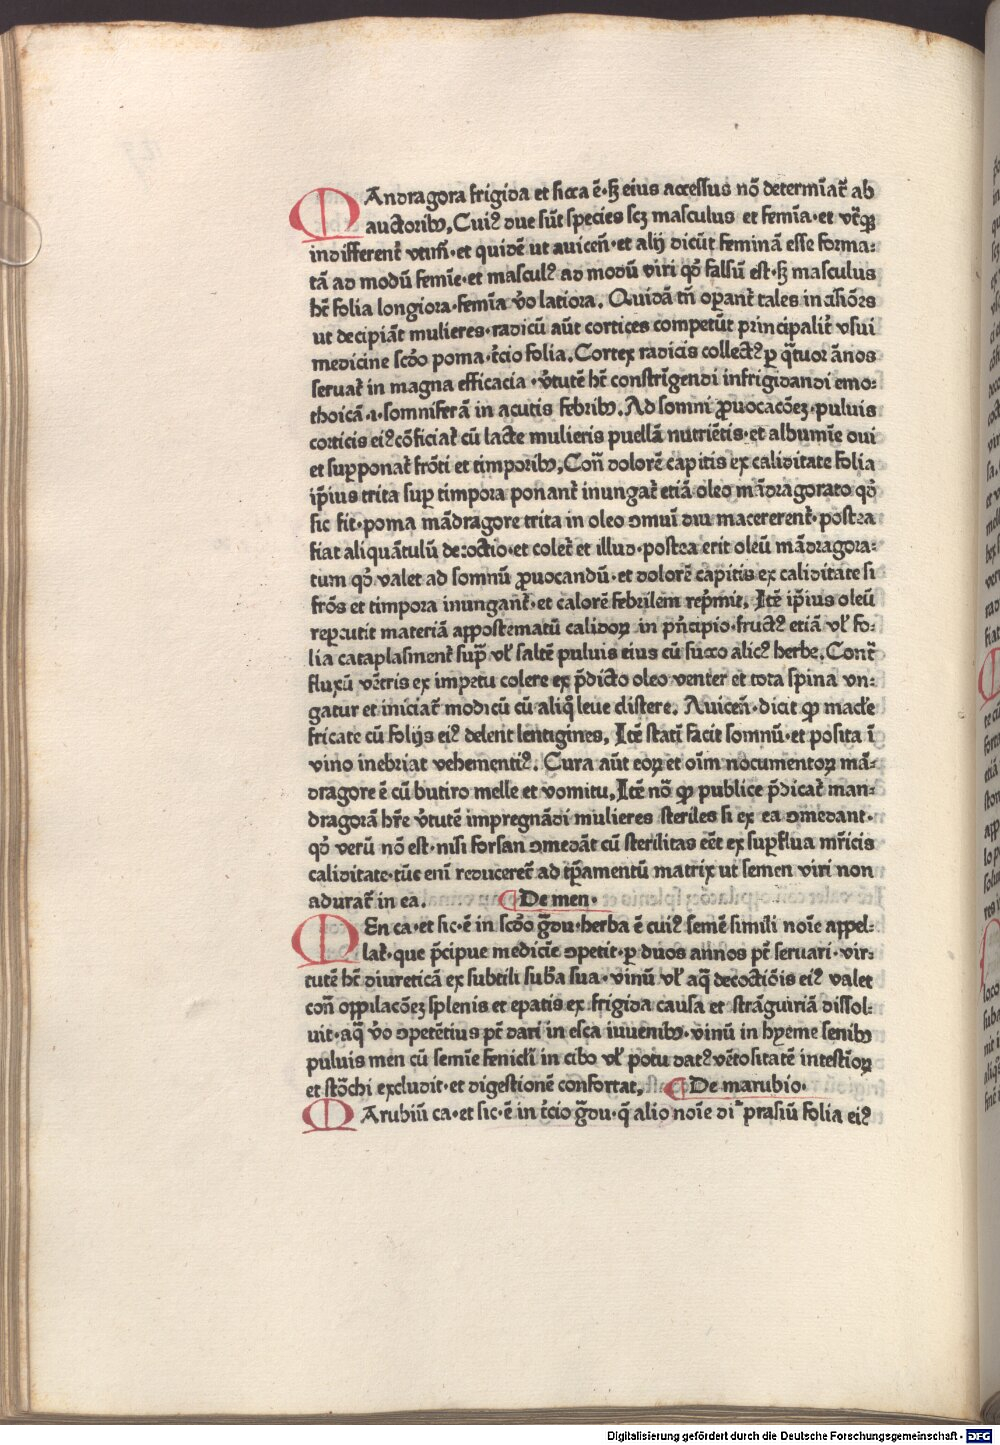 MAndragora frigida et sicca ē·sꝫ eius accessus nō determīat᷑ ab
auctoribꝫ, Cuiꝰ due sūt species scꝫ masculus et femīa·et vt᷑qꝫ
indifferent᷑ vtim̄·et quidē ut auiceñ·et alij dicūt feminā esse forma⸗
tā ad modū femīe·et masculꝰ ad modū viri qd̛ falsū est·sꝫ masculus
hꝫ folia longiora·femīa v̛o latiora. Quidā tñ oꝑant᷑ tales in
ut decipiāt mulieres·radicū aūt cortices competūt principalit᷑ vsui
medicine scd̛o poma·t᷑cio folia. Cortex radicis collectꝰ ꝑ q̄tuor ānos
seruat᷑ in magna efficacia·v̛tutē hꝫ constrīgendi infrigidandi emo⸗
thoicā·ı·somniferā in acutis febribꝫ. Ad somni ꝓuocacōeꝫ·puluis
corticis eiꝰ cōficiat᷑ cū lacte mulieris puellā nutriētis·et albumīe oui
et supponat᷑ frōti et timporibꝫ, Coñ dolorē capitis ex caliditate folia
ip̄ius trita suꝑ timpora ponant᷑ inungat᷑ etiā oleo mādragorato qd̛
sic fit·poma mādragore trita in oleo ↄmuni diu macererent᷑·postea
fiat aliquātulū decoctio·et colet᷑ et illud·postea erit oleū mādragora⸗
tum qd̛ valet ad somnū ꝓuocandū·et dolorē capitis ex caliditate si
frōs et timpora inungant᷑·et calorē febrilem rep̄mit. Itē ip̄ius oleū
reꝑcutit materiā appostematū calidoꝝ in pñcipio·fructꝰ etiā vl̛ fo⸗
lia cataplasment᷑ suꝑ vl̛ saltē puluis eius cū succo alicꝰ herbe. Cont᷑
fluxū vētris ex impetu colere ex p̄dicto oleo venter et tota spina vn⸗
gatur et iniciat᷑ modicū cū aliq̛ leue clistere. Auiceñ·dicit qꝫ macl̛e
fricate cū folijs eiꝰ delent lentigines, Itē statī facit somnū·et posita ī
vino inebriat vehementiꝰ. Cura aūt eoꝝ et oīm nocumentoꝝ mā⸗
dragore ē cū butiro melle et vomitu, Itē nō qꝫ publice p̄dicat᷑ man⸗
dragorā hr̄e v̛tutē impregnādi mulieres steriles si ex ea ↄmedant·
qd̛ verū nō est·nisi forsan ↄmedāt cū sterilitas eēt ex suꝑflua mr̄icis
caliditate·tūc enī reduceret᷑ ad tꝑamentū matrix ut semen viri non
adurat᷑ in ea. ¶De men·
MEn ca·et sic·ē in scd̛o g̈du·herba ē cuiꝰ semē simili noīe appel⸗
lat᷑·que p̄cipue medicīe ↄpetit·ꝑ duos annos pt᷑ seruari·vir⸗
tutē hꝫ diureticā ex subtili sub̄a sua·vinū vl̛ aq̄ decoctiōis eiꝰ valet
coñ oppilacōeꝫ splenis et epatis ex frigida causa et strāguiriā dissol⸗
uit·aq̄ v̛o ↄpetētius pt᷑ dari in esca iuuenibꝫ·vinū in hyeme senibꝫ
puluis men cū semīe feniclī in cibo vl̛ potu datꝰ vētositatē intestīoꝝ
et stōchi excludit·et digestionē confortat, ¶De marubio·
MArubiū ca·et sic·ē in t᷑cio g̈du·q̄ alio noīe dī prasiū folia eiꝰ
Digitalisierung gefördert durch die Deutsche Forschungsgemeinschaft · DFG